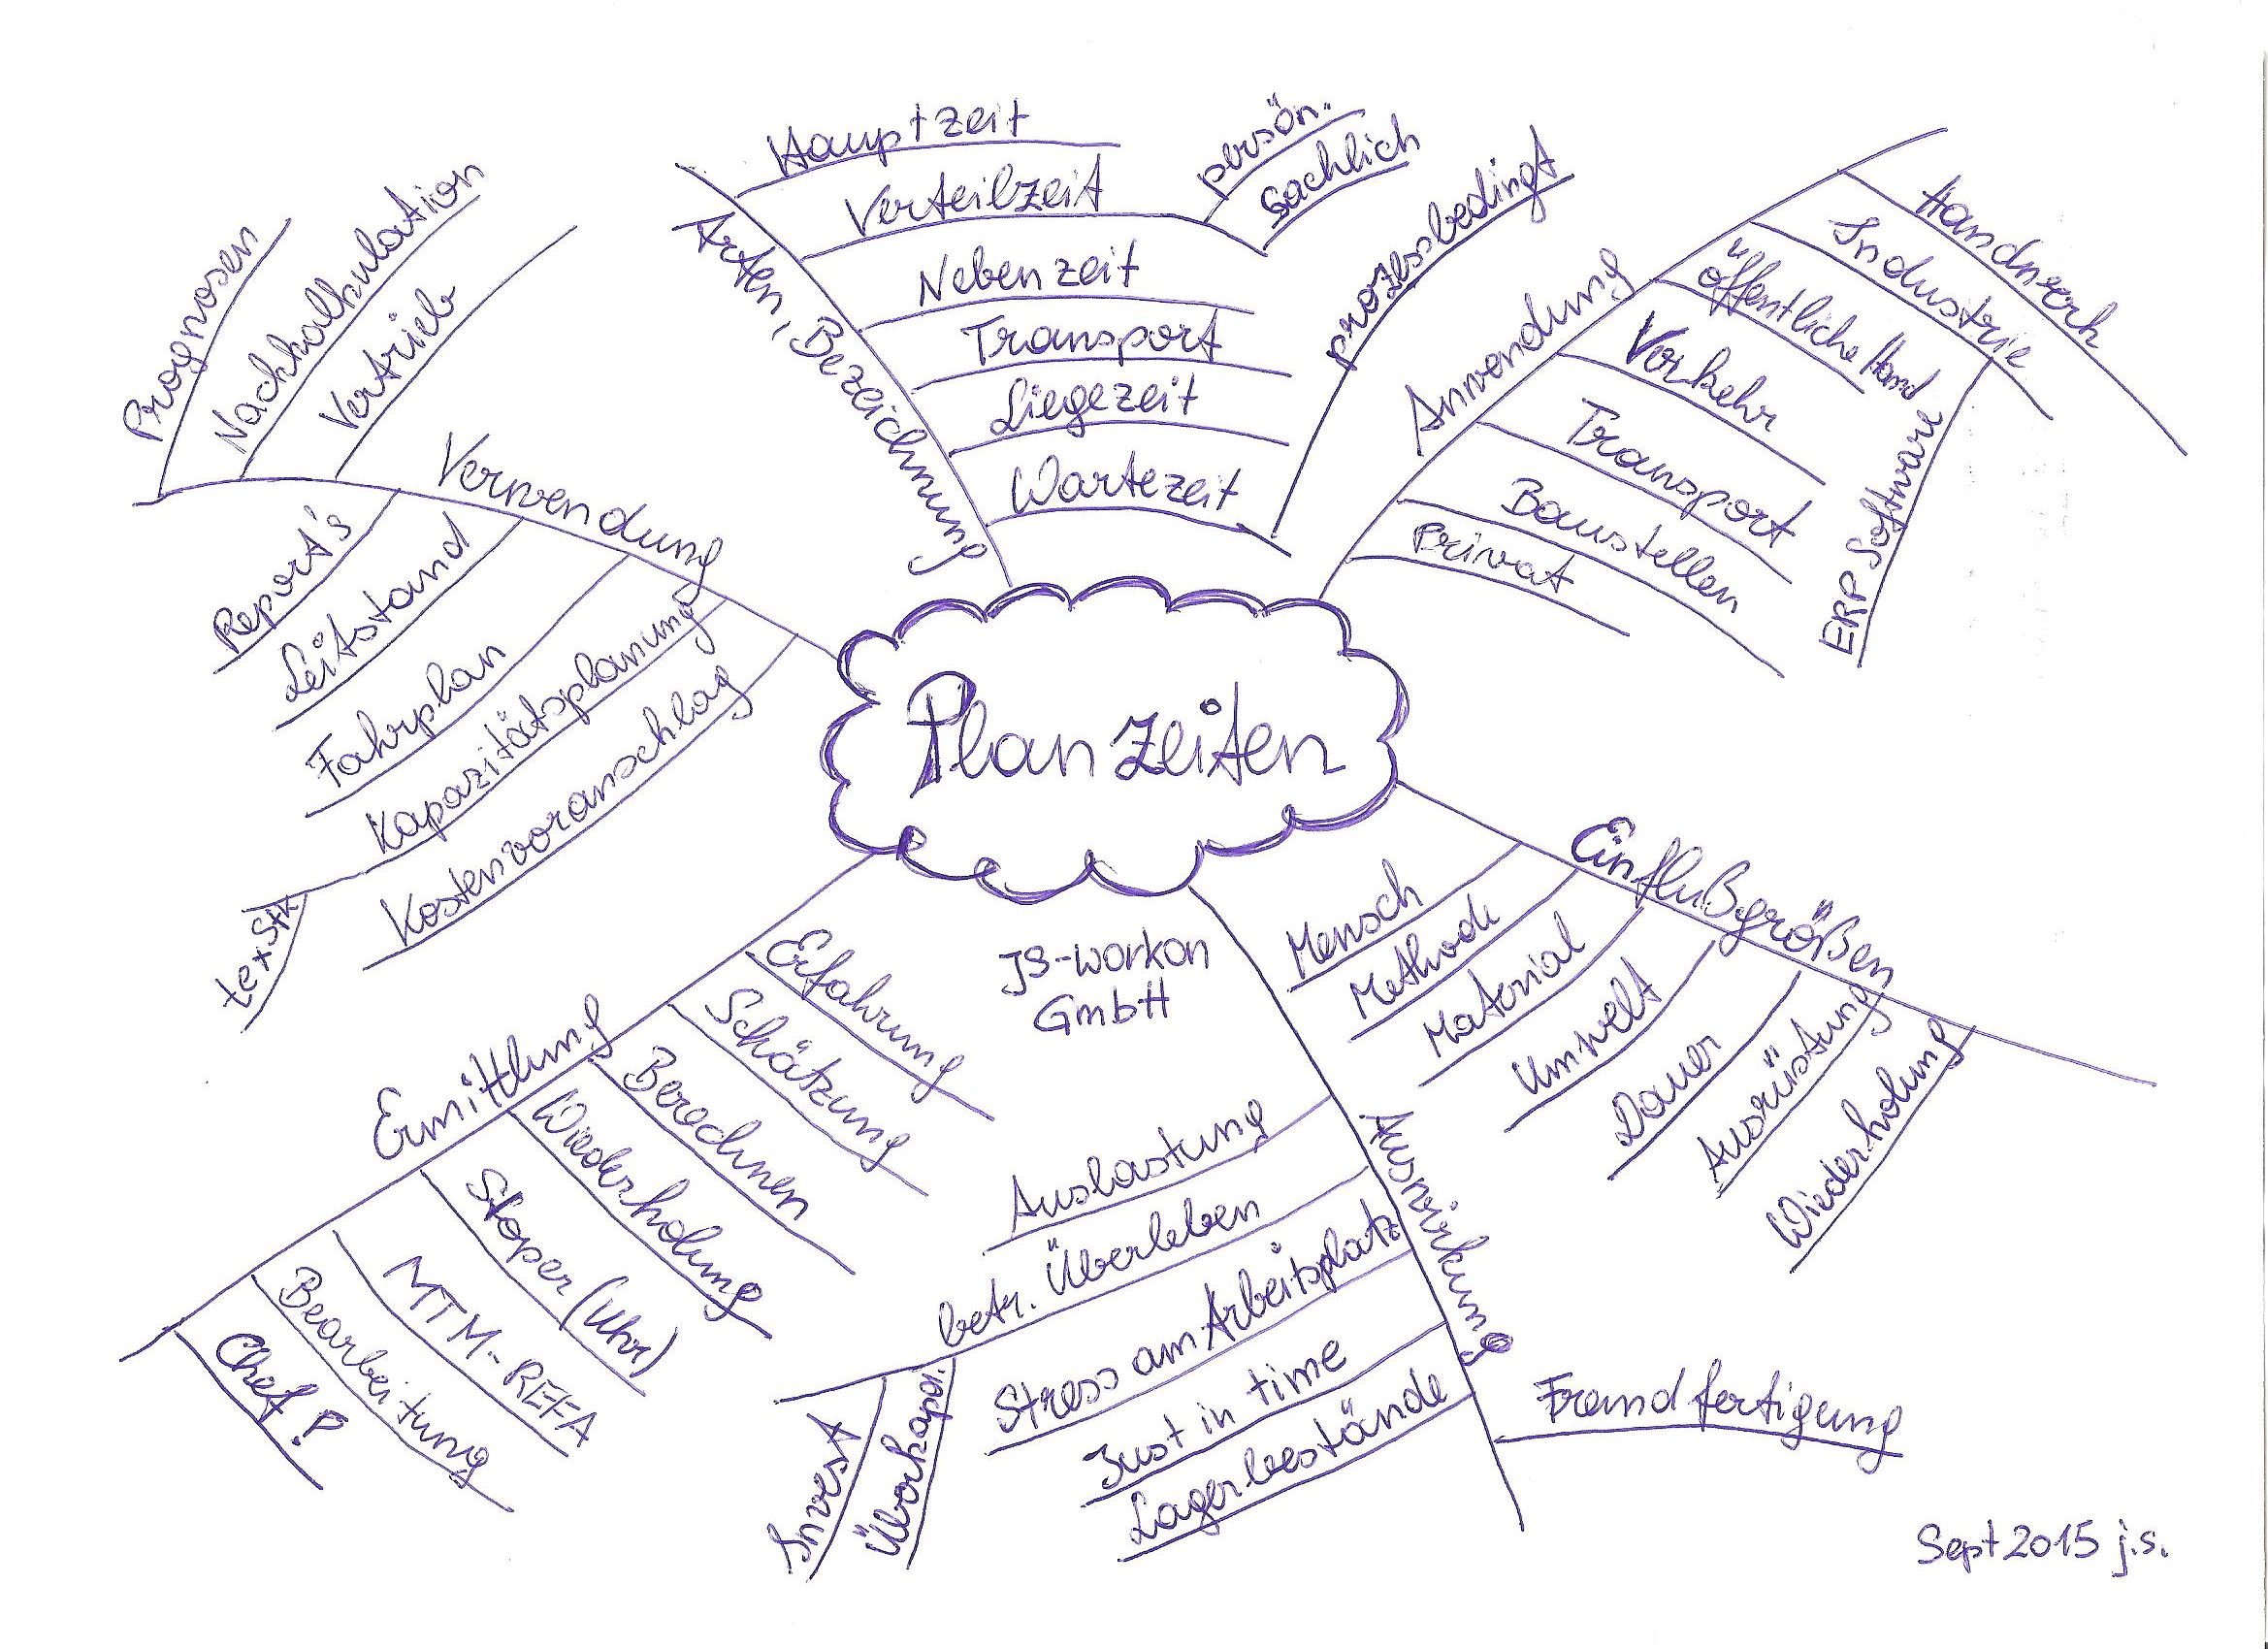 Planzeiten
JS-workon
GmbH
Arten, Bezeichnung
Hauptzeit
Verteilzeit
persön.
sachlich
Nebenzeit
Transport
Liegezeit
Wartezeit
prozessbedingt
Anwendung
Handwerk
Industrie
ERP Software
öffentliche Hand
Verkehr
Transport
Baustellen
Privat
Einflußgrößen
Mensch
Methode
Material
Umwelt
Dauer
Ausrüstung
Wiederholung
Auswirkung
Auslastung
betr. Überleben
Invest
Überkapa.
Stress am Arbeitsplatz
Just in time
Lagerbestände
Fremdfertigung
Ermittlung
Erfahrung
Schätzung
Berechnen
Wiederholung
Stoper (Uhr)
MTM-REFA
Bearbeitung
Chef?
Verwendung
Prognosen
Nachkalkulation
Vertrieb
Report's
Leitstand
Fahrplan
Kapazitätsplanung
texStk
Kostenvoranschlag
Sept 2015 j.s.